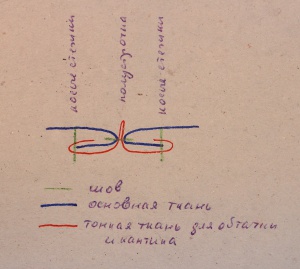 косые стежки
полустрочка
косые стежки
шов
основная ткань
тонкая ткань для обтачки
и кантика